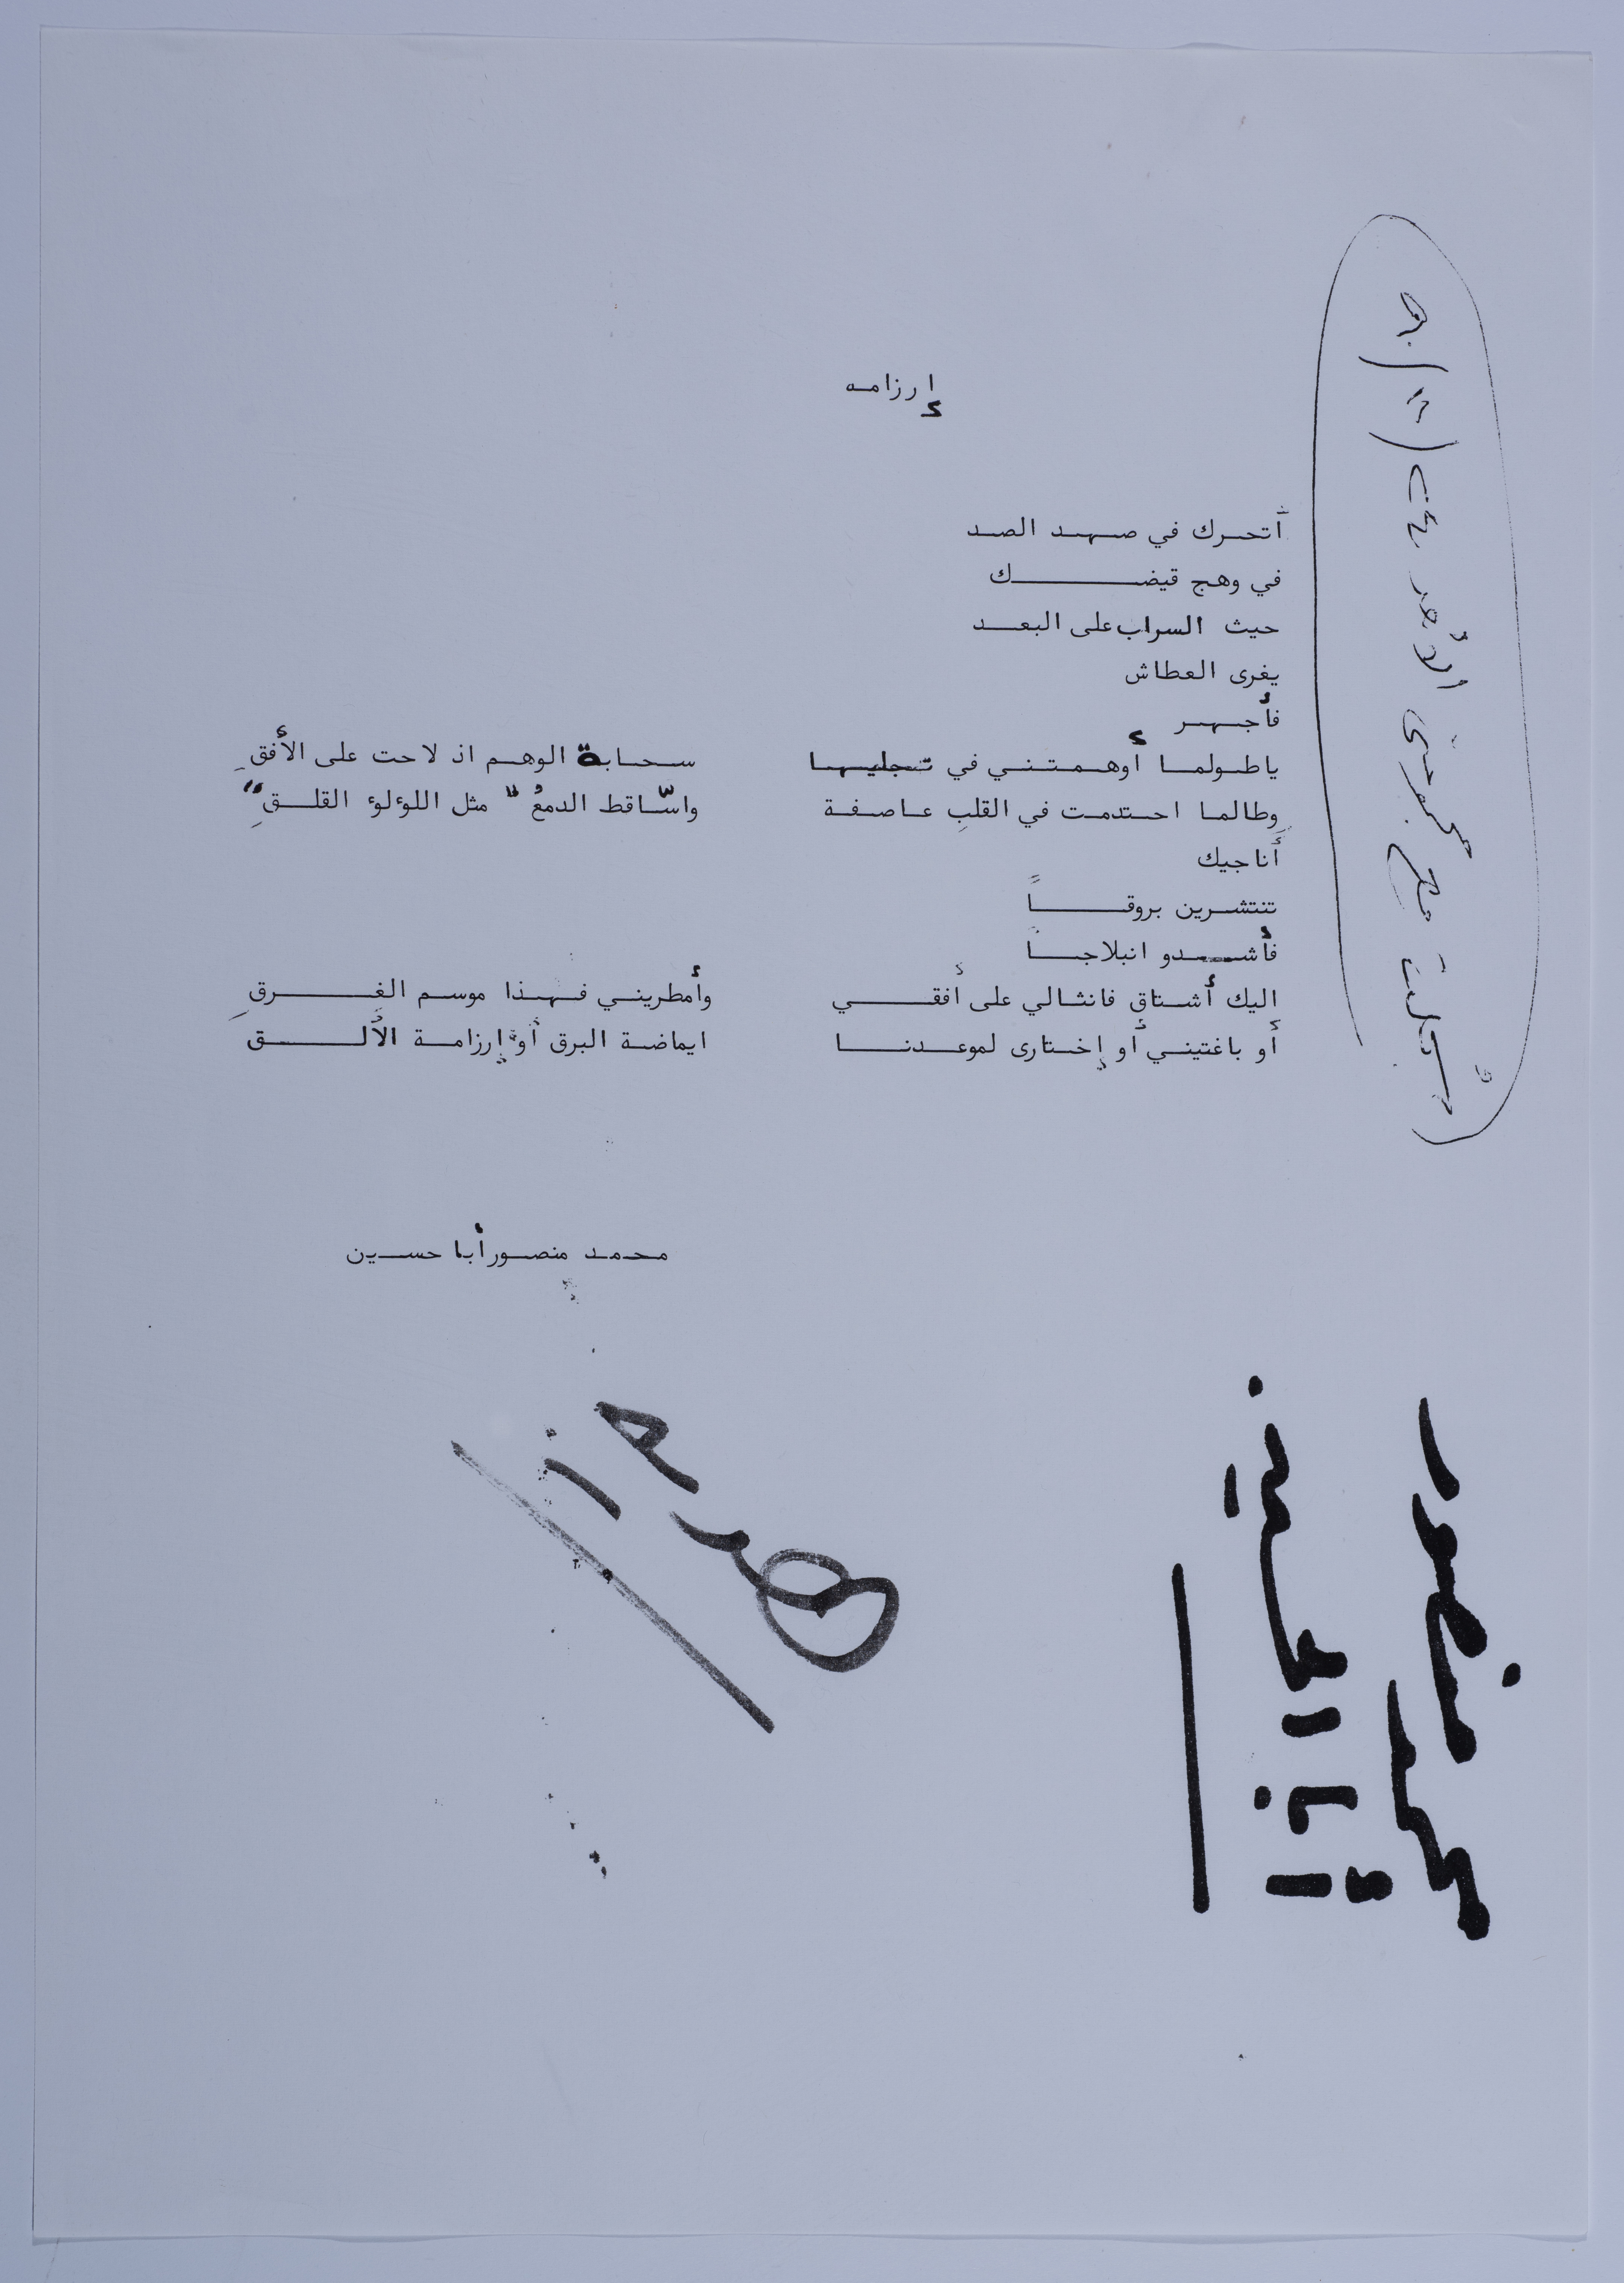 إرزامه
أتحرك في صهد الصد
في وهج قيضك
حيث السراب على البعد
يغرى العطاش
فأجهر
ياطولما أوهمتني في تجليها سحابة الوهم اذ لاحت على الأفقِ
وطالما احتدمت في القلبِ عاصفة واسّاقط الدمعُ " مثل اللؤلؤ القلقِ "
أناجيك
تنتشرين بروقاً
فأشدو انبلاجاً
اليك أشتاق فانثالي على أفقي وأمطريني فهذا موسم الغرقِ
أو باغتيني أو إختارى لموعدنا ايماضة البرق أو إرزامة الألق
محمد منصور أبا حسين
محمد منصور
أبا الحسين